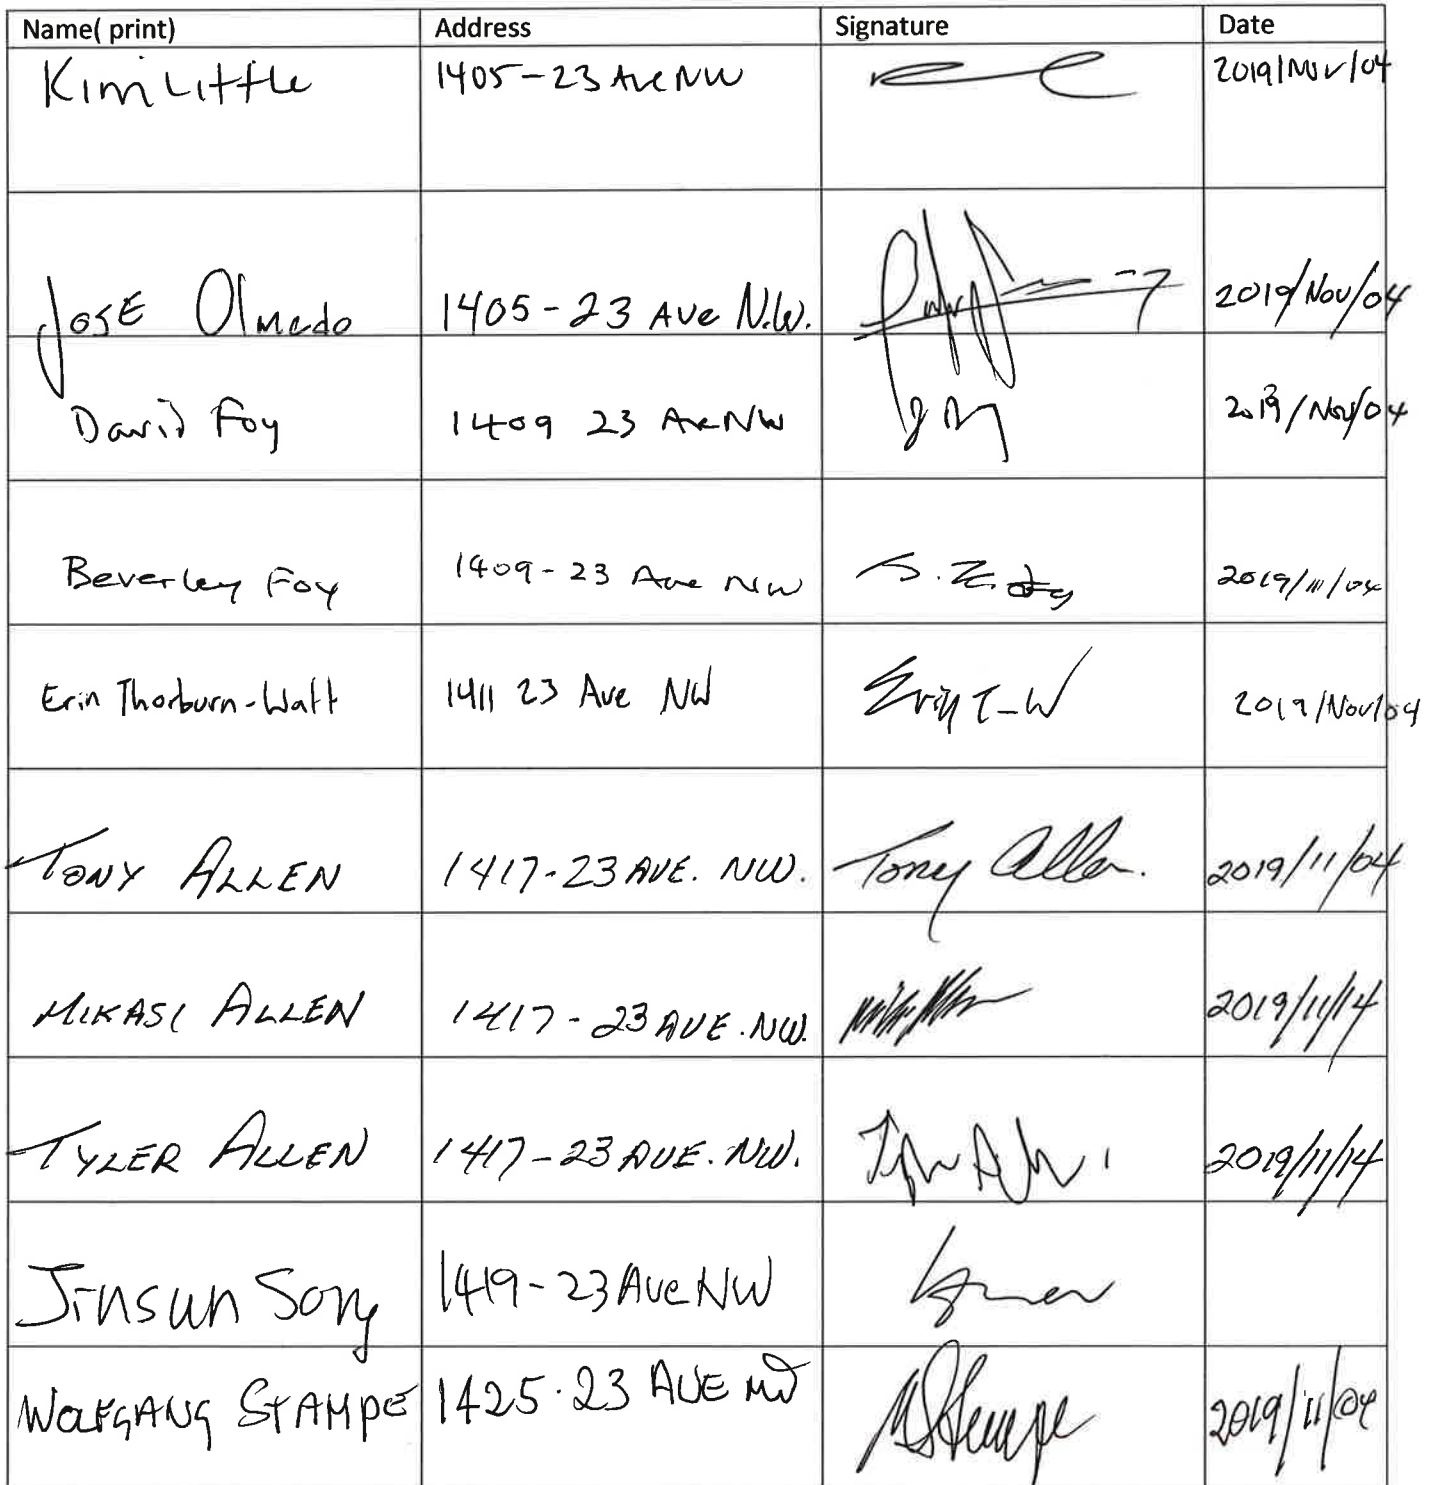 Name( print) Address Signature Date
Kim Little 1405-23 Ave NW 2019/Nov/04
Jose Olmedo 1405-23 Ave N.W. 2019/Nov/04
David Foy 1409 23 Ave NW 2019/Nov/04
Beverley Foy 1409-23 Ave NW 2019/11/04
Erin Thorburn-Watt 1411 23 Ave NW Erin T-W 2019/Nov/04
TONY ALLEN 1417-23 AVE. NW. Tony Allen. 2019/11/04
MIKASI ALLEN 1417-23 AVE. NW. 2019/11/14
TYLER ALLEN 1417-23 AVE. NW. 2019/11/14
Jinsun Song 1419-23 Ave NW
WOLFGANG STAMPE 1425-23 AVE NW WStampe 2019/11/04